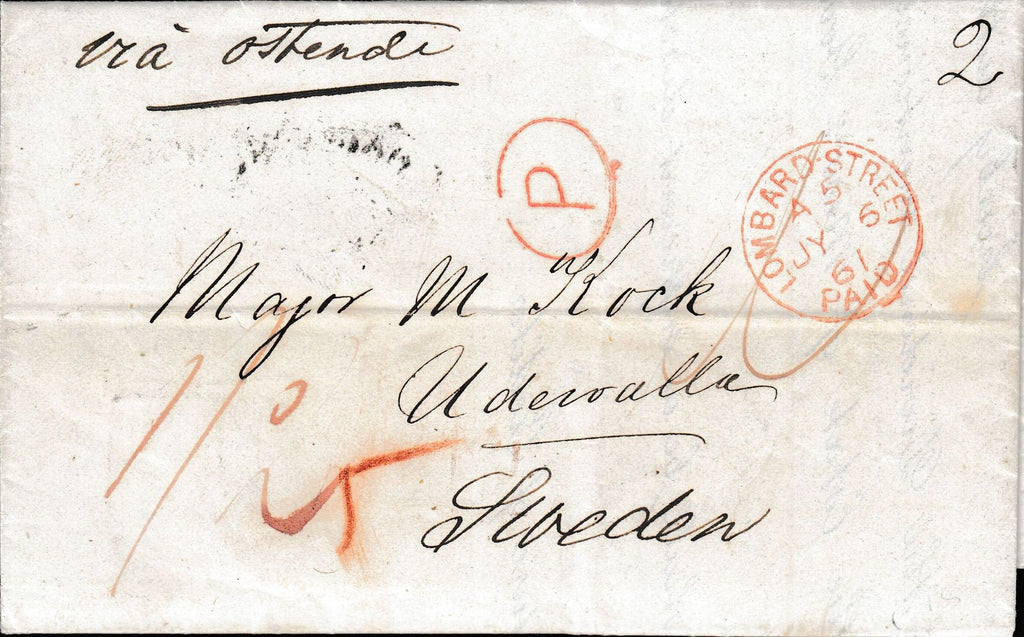 via ostende
2
P
LOMBARD·STREET
A 5 6
JY
61
PAID
Major M Kock
Udewalla
Sweden
1/2
5